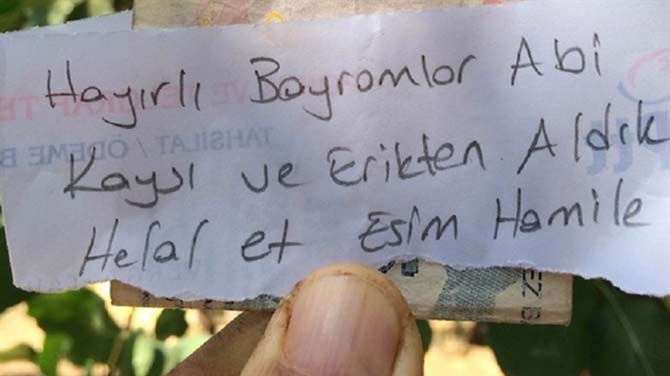 Hayırlı Bayramlar Abi
Kaysı ve Erikten Aldık
Helal et Eşim Hamile
TAHSİLAT / ÖDEME B